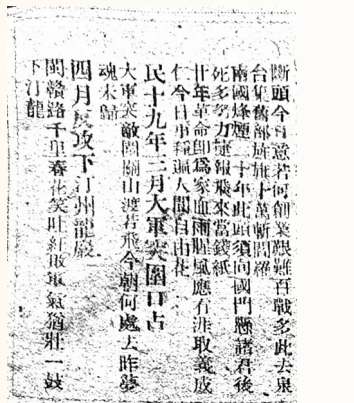 斷頭今日意若何創業艱難百戰多此去泉
台集舊部旌旗十萬斬閻羅
南國烽煙二十年此頭須向國門懸諸君後
死多努力捷報飛來當錢紙
廿年革命卽爲家血雨腥風應有涯取義成
仁今日事種遍人間自由花
民十九年三月大軍突圍口占
大軍突敵圍關山渡若飛今朝何處去昨夢
魂未歸
四月反攻下汀州龍巖
閩贛路千里春花笑吐紅敗軍氣猶壯一鼓
下汀龍